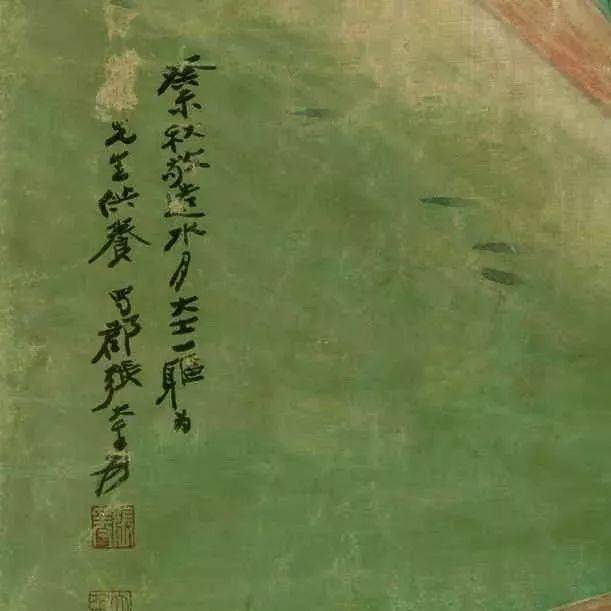 癸未秋敬造水月大士一軀為
先生供養 蜀郡張大千爰